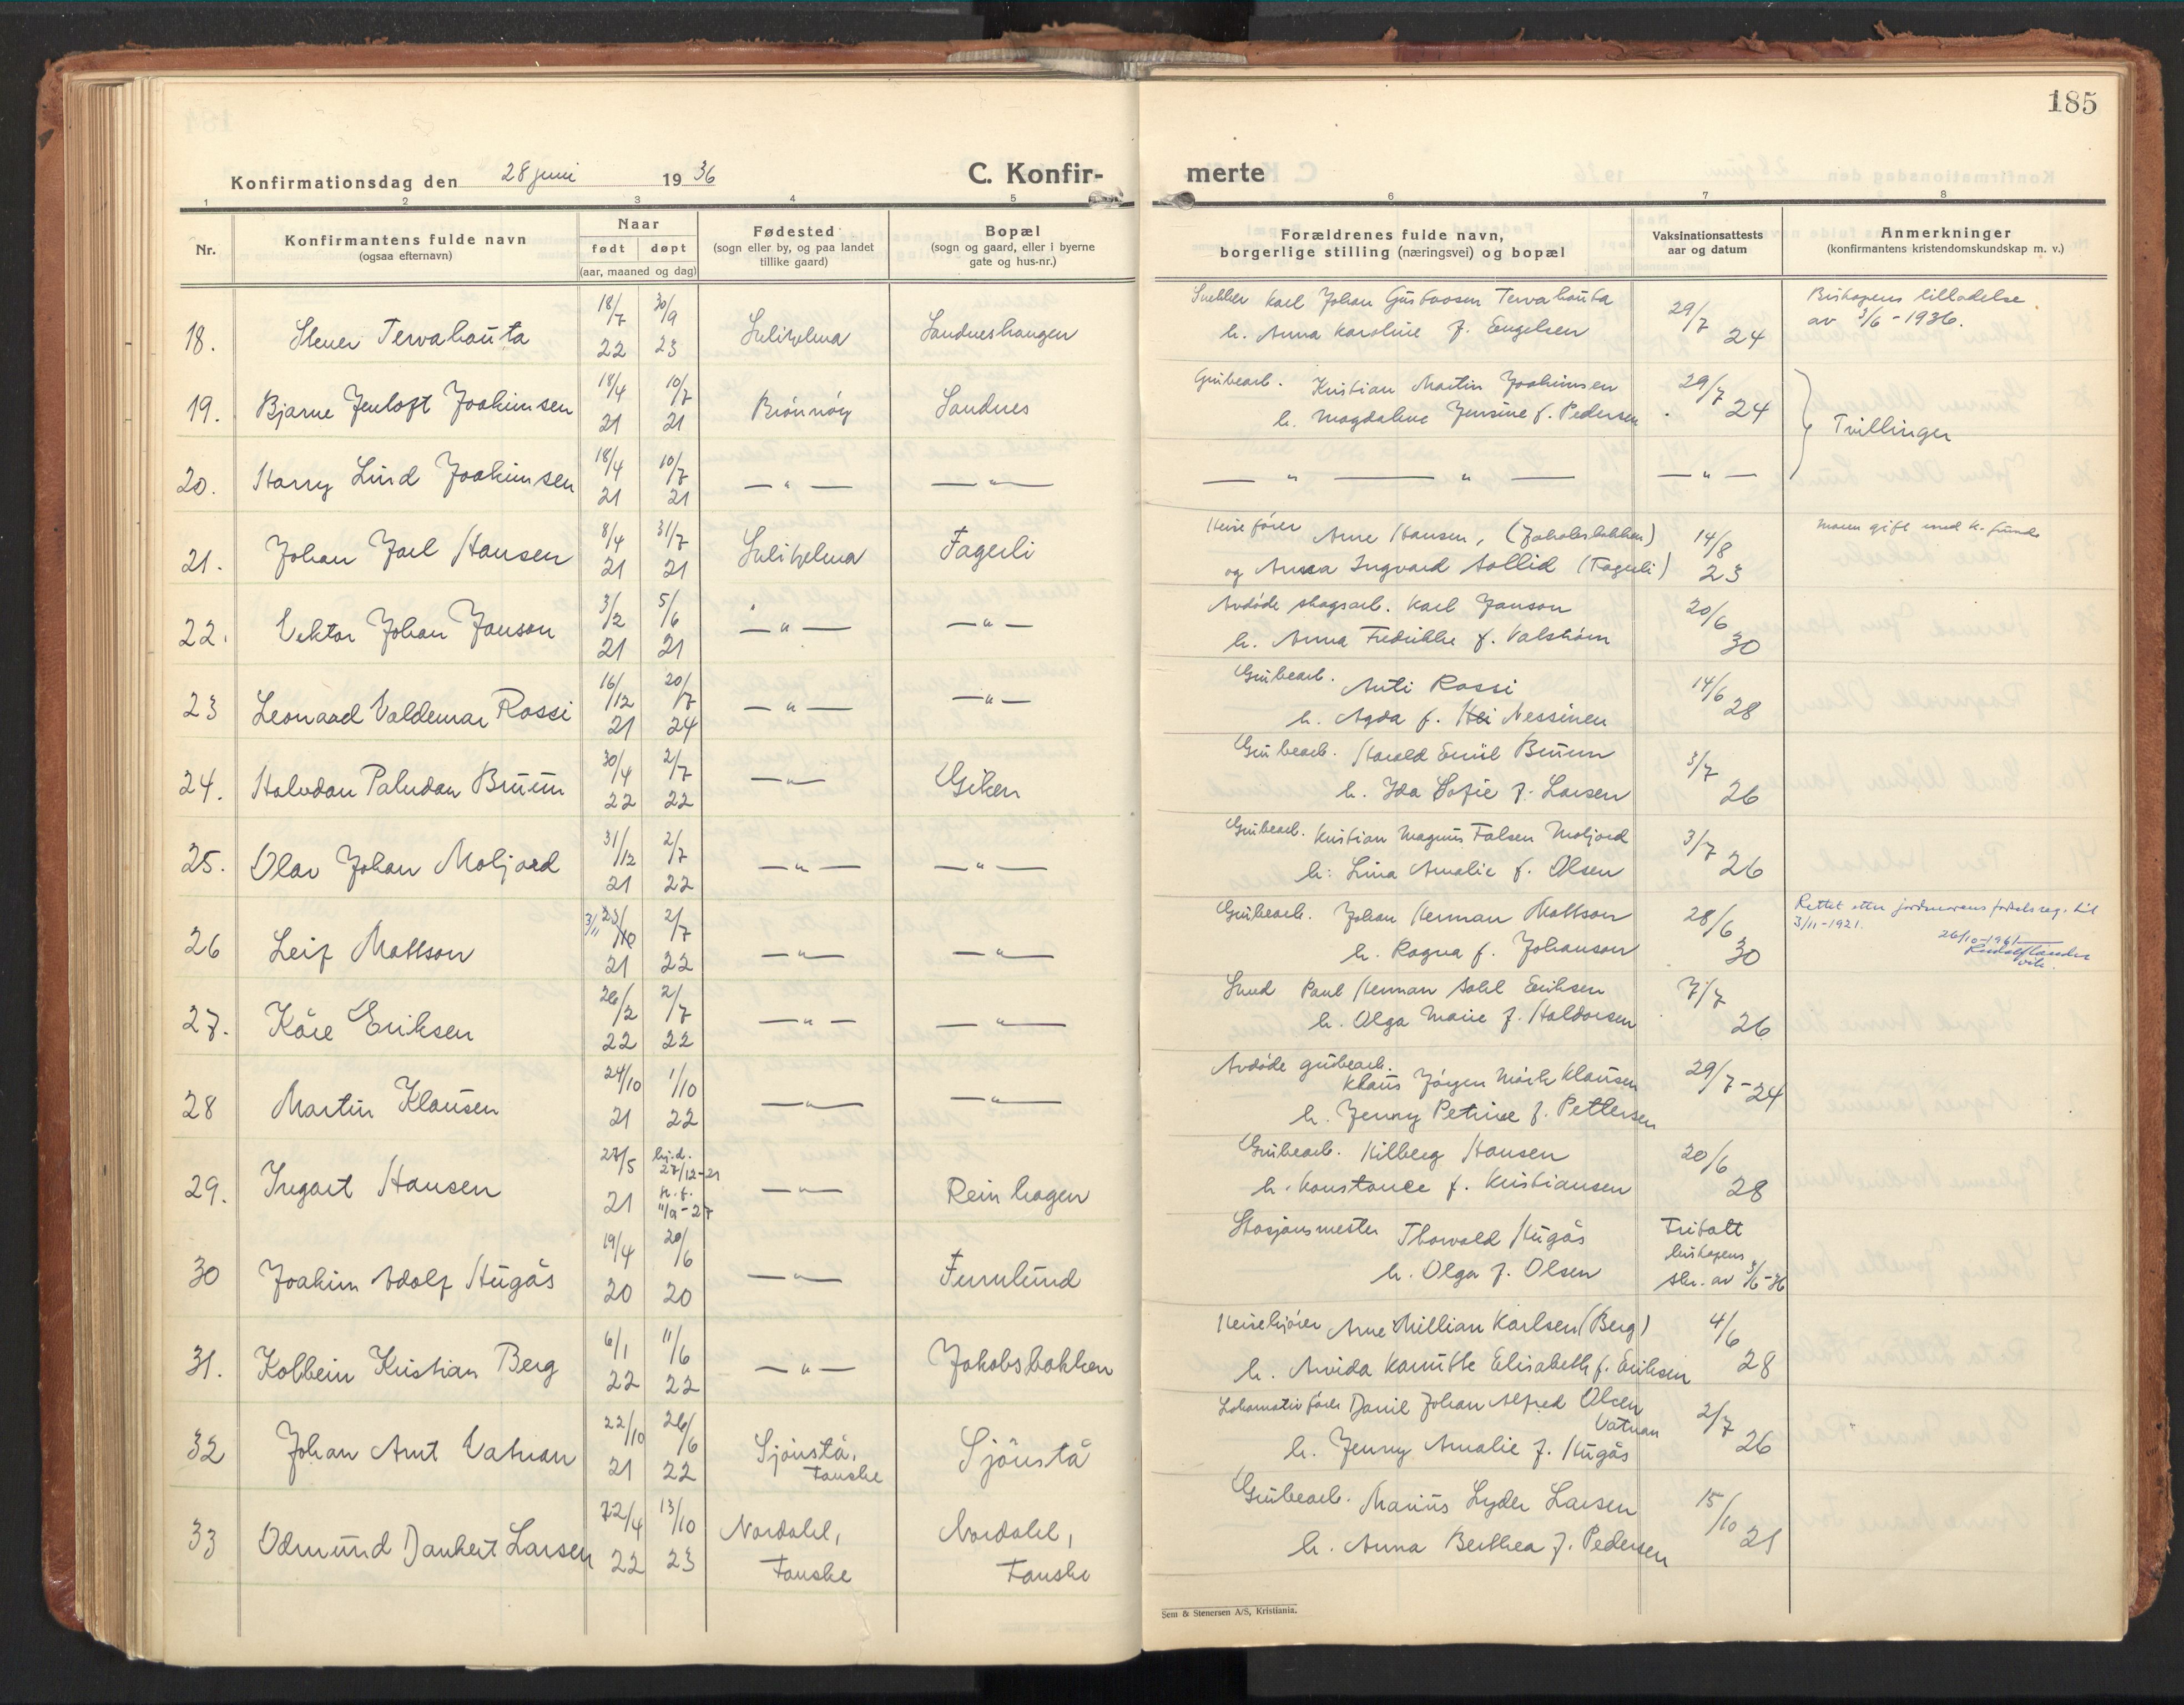 185
Konfirmationsdag den 28 juni 1936
C. Konfir-
merte
1 2 3 4 5 6 7 8
Nr.
Konfirmantens fulde navn
(ogsaa efternavn)
Naar
født døpt
(aar, maaned og dag)
Fødested
(sogn eller by, og paa landet
tillike gaard)
Bopæl
(sogn og gaard, eller i byerne
gate og hus-nr.)
Forældrenes fulde navn,
borgerlige stilling (næringsvei) og bopæl
Vaksinationsattests
aar og datum
Anmerkninger
(konfirmantens kristendomskundskap m. v.)
18. Stener Tervahauta 18/7 22 30/9 23 Sulitjelma Sandneshaugen
Snekker Karl Johan Gustavsen Tervahauta
h. Anna Karoline f. Engelsen
29/7 24
Biskopens tilladelse
av 3/6 - 1936.
19. Bjarne Jenloft Joakimsen 18/4 21 10/7 21 Brønnøy Sandnes
Grubearb. Kristian Martin Joakimsen
h. Magdalene Jensine f. Pedersen
29/7 24
Tvillinger
20. Harry Lind Joakimsen 18/4 21 10/7 21 — " — — " —
— " — " — — " —
21. Johan Jarl Hansen 8/4 21 31/7 21 Sulitjelma Fagerli
Heisefører Arne Hansen, (Jakobsbakken)
og Anna Ingvard Sollid (Fagerli)
14/8 23
moren gift med K.
22. Vektor Johan Janson 3/2 21 5/6 21 — " — — " —
Avdøde skogsarb. Karl Janson
h. Anna Fredrikke f. Valstrøm
20/6 30
23 Leonard Valdemar Rossi 16/12 21 20/7 24 — " — — " —
Grubearb. Anti Rossi
h. Agda f. Hei Nessinen
14/6 28
24. Halvdan Paludan Bruun 30/4 22 2/7 22 — " — Giken
Grubearb. Harald Emil Bruun
h. Ida Sofie f. Larsen
3/7 26
25. Olav Johan Moljord 31/12 21 2/7 22 — " — — " —
Grubearb. Kristian Magnus Falsen Moljord
h. Lina Amalie f. Olsen
3/7 26
26 Leif Mattson 3/11 23/10 21 2/7 22 — " — — " —
Grubearb. Johan Herman Mattson
h. Ragna f. Johanson
28/6 30
Rettet etter jordmorens fødselsreg. til
3/11-1921.
26/10-1961
27. Kåre Eriksen 26/2 22 2/7 22 — " — — " —
Smed Paul Herman Dahl Eriksen
h. Olga Marie f. Haldorsen
7/7 26
28 Martin Klausen 24/10 21 1/10 22 — " — — " —
Avdøde grubearb.
Klaus Jørgen Mörk Klausen
h. Jenny Petrine f. Pettersen
29/7 - 24
29. Ingart Hansen 27/5 21 hj.d. 27/12-21 st. f. 11/9-27 — " — Reinhagen
Grubearb. Hilberg Hansen
h. Konstance f. Kristiansen
20/6 28
30 Joakim Adolf Hugås 19/4 20 20/6 20 — " — Furulund
Stasjonsmester Thorvald Hugås
h. Olga f. Olsen
Fritatt
biskopens
skr. av 3/6-36
31. Kolbein Kristian Berg 6/1 22 11/6 22 — " — Jakobsbakken
Heisekjører Arne Millian Karlsen (Berg)
h. Arvida Kamitte Elisabeth f. Eriksen
4/6 28
32 Johan Arnt Vatnan 22/10 21 26/6 22 Sjønstå, Fauske Sjönstå
Lokomotivfører Daniel Johan Alfred Olsen
Vatnan
h. Jenny Amalie f. Hugås
2/7 26
33 Odmund Dankert Larsen 22/4 22 13/10 23 Nordahl, Fauske Nordahl, Fauske
Grubearb. Marius Lyder Larsen
h. Anna Berthea f. Pedersen
15/10 21
Sem & Stenersen A/S, Kristiania.